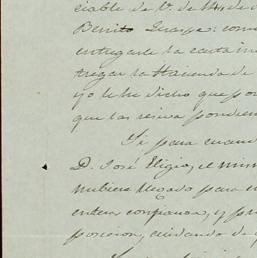 ciable de V. de 14 de
Benito Quarpe: com
entregarle la carta in
tregar la Hacienda de
yo le he dicho que por
que las sirva pondrem
Si para cuan
D. José Eligio, el mism
hubiere llegado para
entera confianza, y pr
posicion, cuidando de